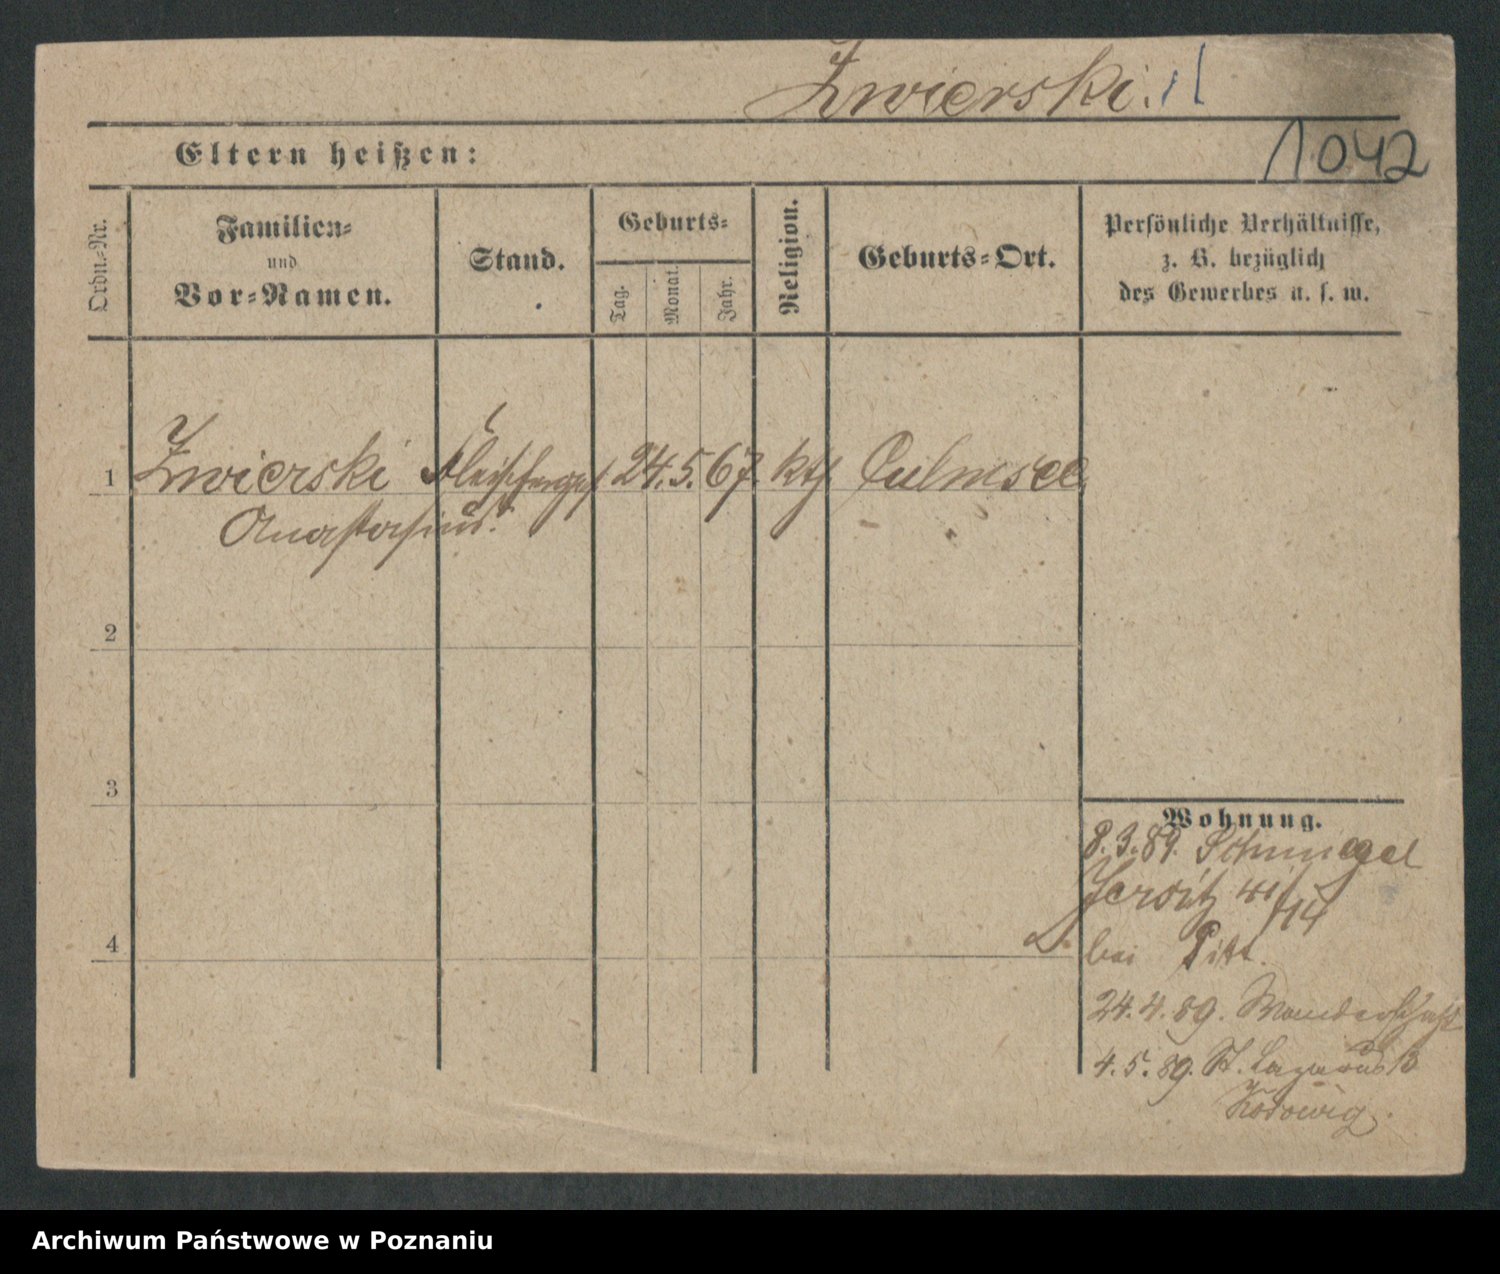 Zwierski.
1042
Eltern heißen:
Ordn.-Nr.
Familien-
und
Vor-Namen.
Stand.
Geburts-
Tag.
Monat.
Jahr.
Religion.
Geburts-Ort.
Persönliche Verhältnisse,
z. B. bezüglich
des Gewerbes u. s. w.
1 Zwierski Fleischerges. 24. 5. 67. kth. Culmsee
Anastasius.
2
3
4
Wohnung.
8.3.89. Schmiegel
Jersitz 41/14
bei
24.4.89. Wanderschaft
4.5.89. St. Lazarus 13
Archiwum Państwowe w Poznaniu